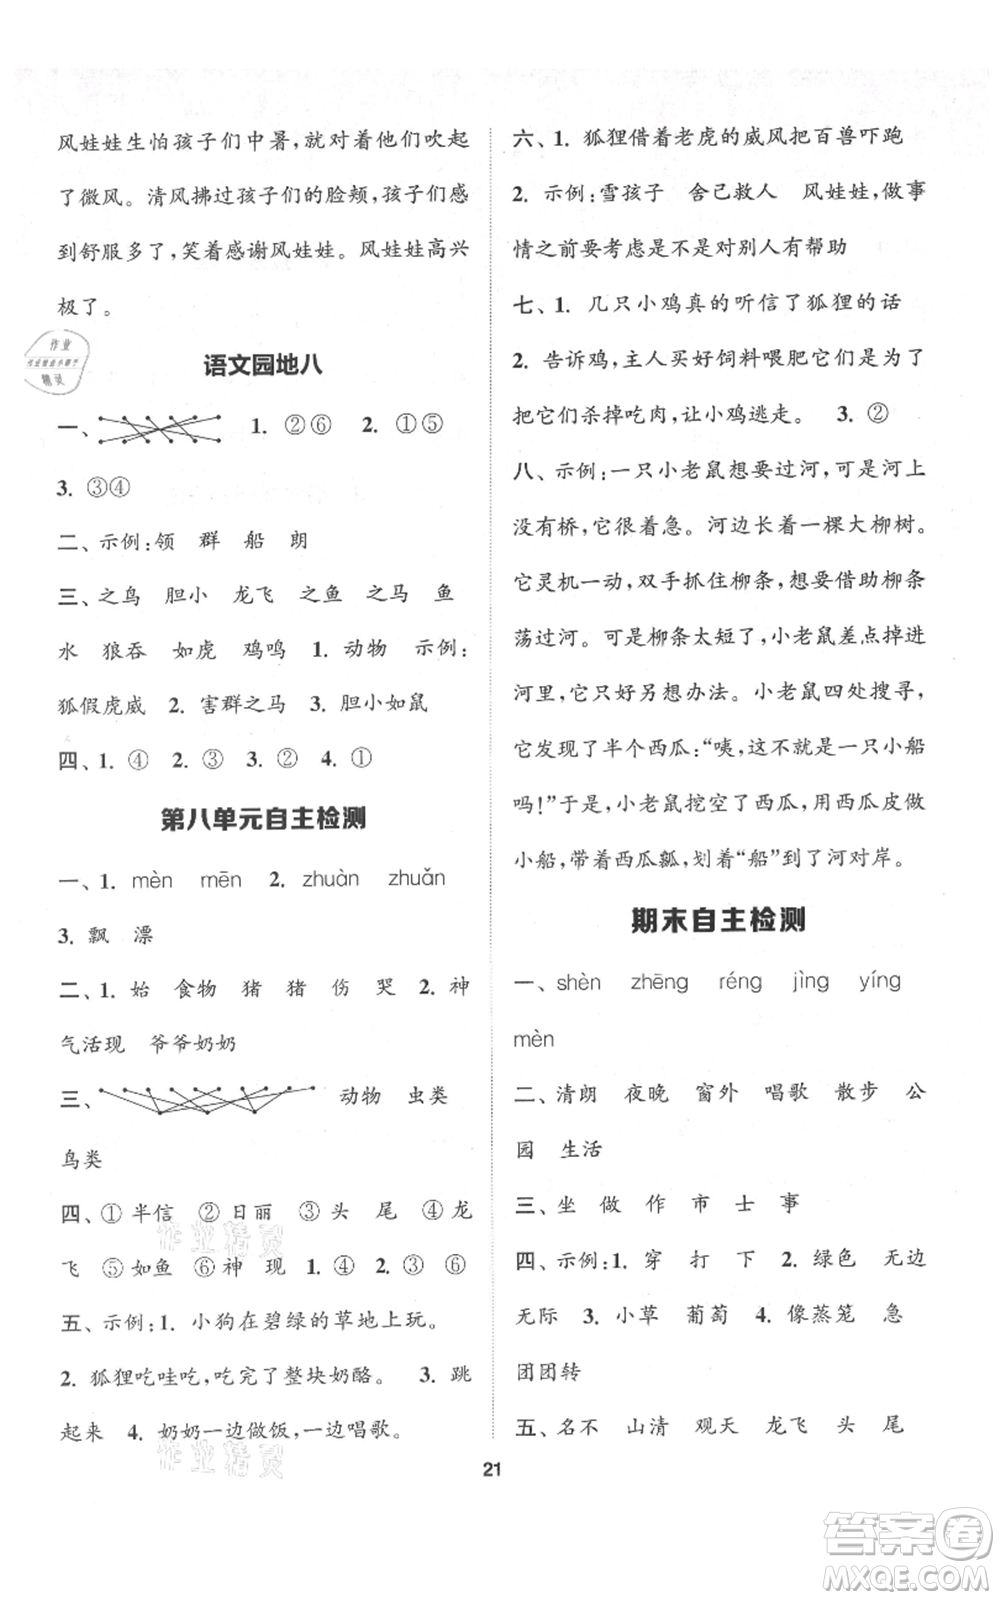 风娃娃生怕孩子们中暑,就对着他们吹起
了微风。清风拂过孩子们的脸颊,孩子们感
到舒服多了,笑着感谢风娃娃。风娃娃高兴
极了。
语文园地八
一、 1. ②⑥ 2. ①⑤
3. ③④
二、示例:领 群 船 朗
三、之鸟 胆小 龙飞 之鱼 之马 鱼
水 狼吞 如虎 鸡鸣 1. 动物 示例:
狐假虎威 2. 害群之马 3. 胆小如鼠
四、1. ④ 2. ③ 3. ② 4. ①
第八单元自主检测
一、1. mèn mēn 2. zhuàn zhuǎn
3. 飘 漂
二、1. 始 食物 猪 猪 伤 哭 2. 神
气活现 爷爷奶奶
三、 动物 虫类
鸟类
四、① 半信 ② 日丽 ③ 头 尾 ④ 龙
飞 ⑤ 如鱼 ⑥ 神 现 1. ④ 2. ③ ⑥
五、示例:1. 小狗在碧绿的草地上玩。
2. 狐狸吃哇吃,吃完了整块奶酪。 3. 跳
起来 4. 奶奶一边做饭,一边唱歌。
六、1. 狐狸借着老虎的威风把百兽吓跑
2. 示例:雪孩子 舍己救人 风娃娃,做事
情之前要考虑是不是对别人有帮助
七、1. 几只小鸡真的听信了狐狸的话
2. 告诉鸡,主人买好饲料喂肥它们是为了
把它们杀掉吃肉,让小鸡逃走。 3. ②
八、示例:一只小老鼠想要过河,可是河上
没有桥,它很着急。河边长着一棵大柳树。
它灵机一动,双手抓住柳条,想要借助柳条
荡过河。可是柳条太短了,小老鼠差点掉进
河里,它只好另想办法。小老鼠四处搜寻,
它发现了半个西瓜:“咦,这不就是一只小船
吗!”于是,小老鼠挖空了西瓜,用西瓜皮做
小船,带着西瓜瓤,划着“船”到了河对岸。
期末自主检测
一、shèn zhēng réng jìng yíng
mèn
二、清朗 夜晚 窗外 唱歌 散步 公
园 生活
三、坐 做 作 市 士 事
四、示例:1. 穿 打 下 2. 绿色 无边
无际 3. 小草 葡萄 4. 像蒸笼 急
团团转
五、名不 山清 观天 龙飞 头 尾
21
作业
精灵
作业精灵
作业精灵
答案卷
MXQE.COM